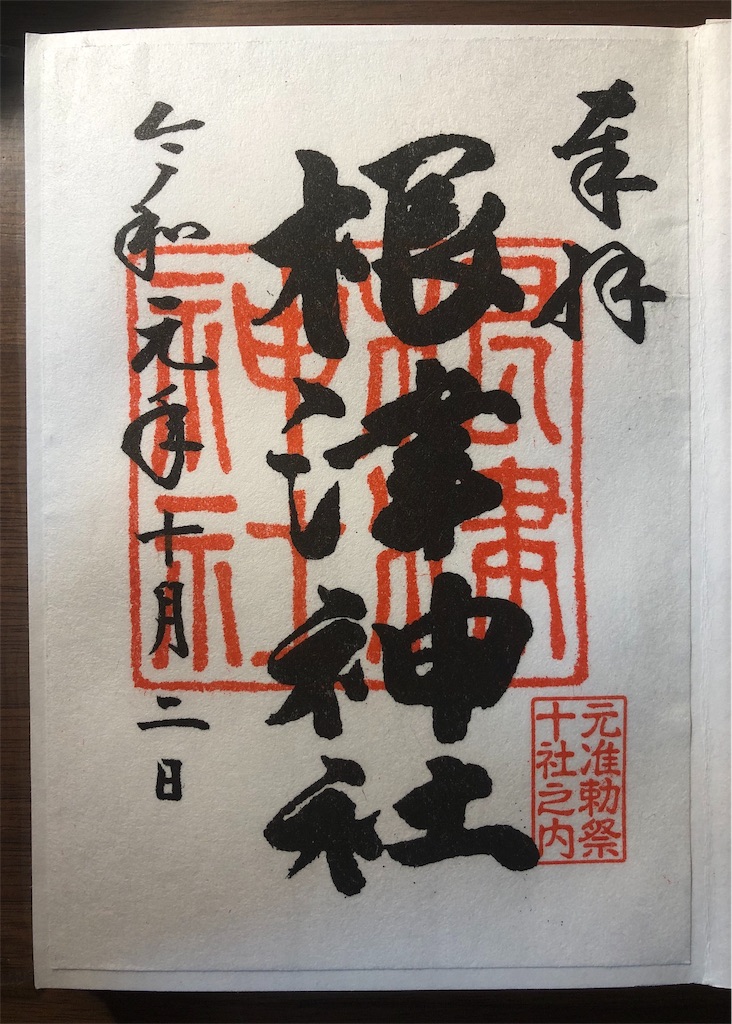 奉拝
根津神社
令和元年十月二日
根津
神社
元准勅祭
十社之内